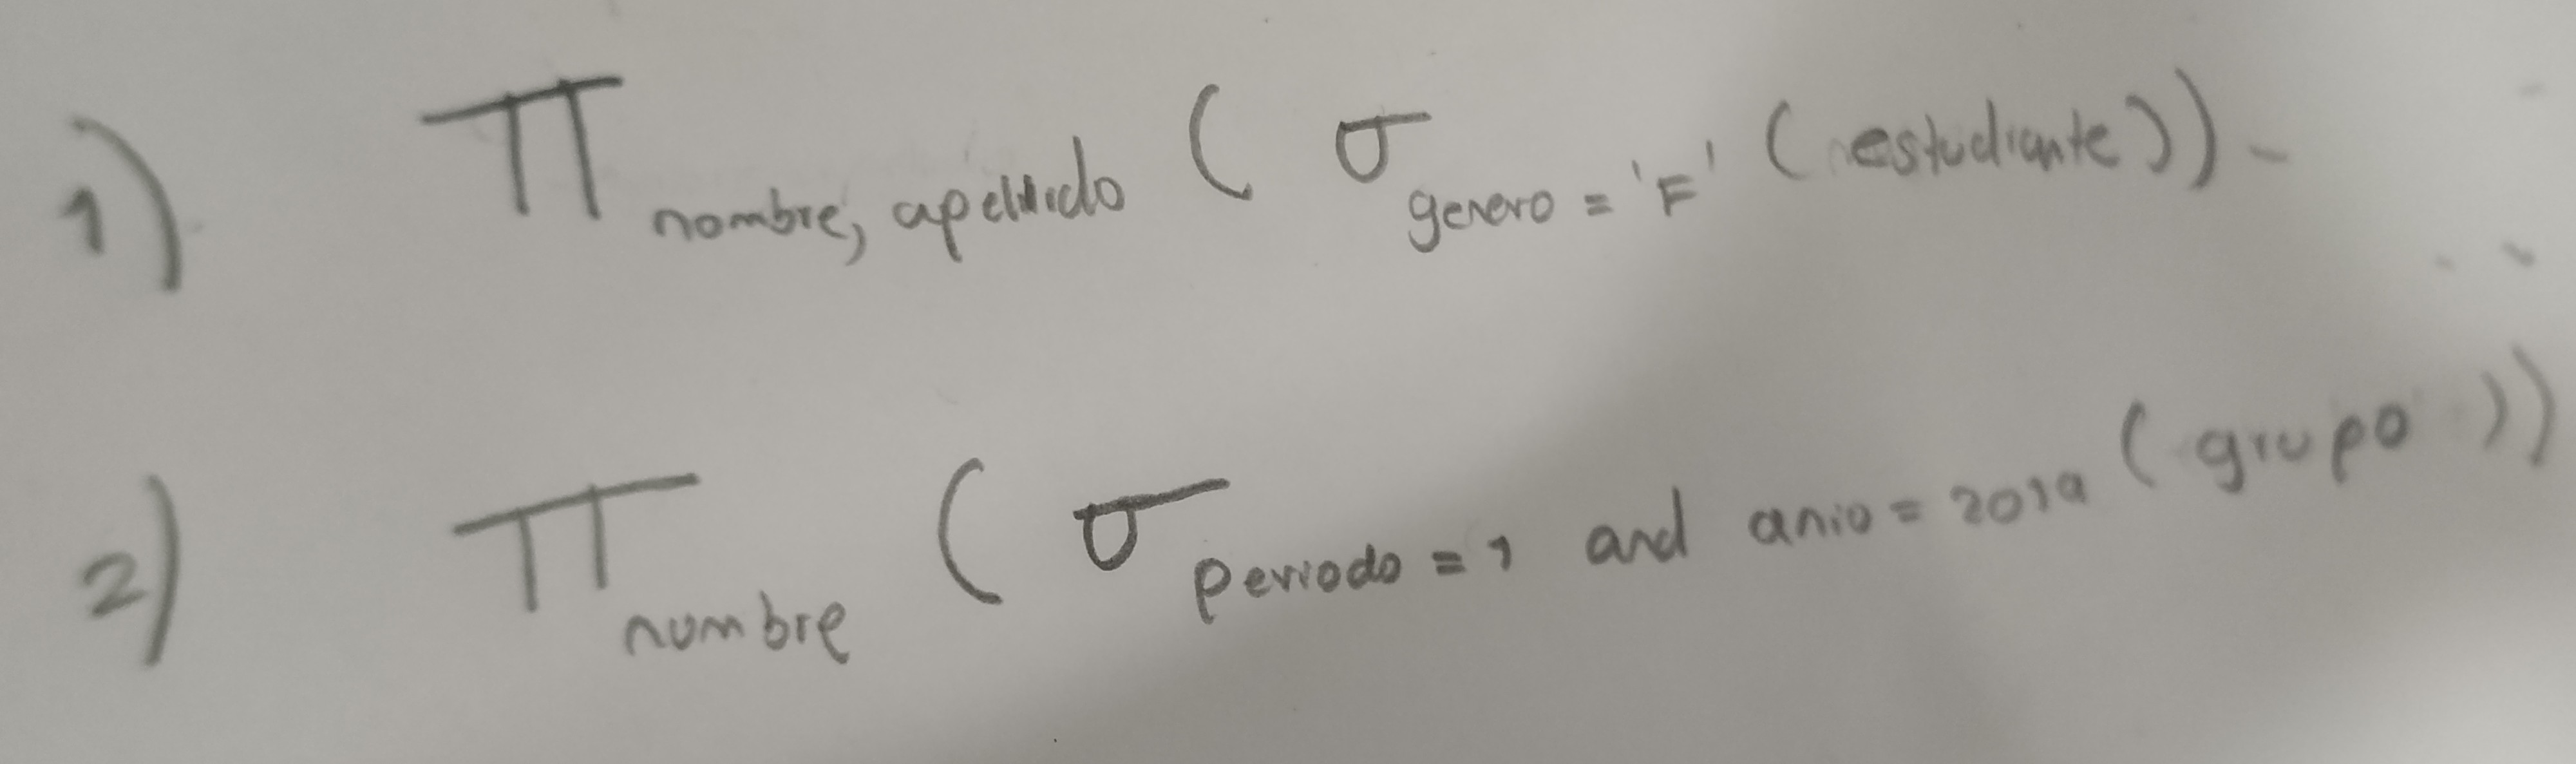 1) π nombre, apellido ( σ genero = 'F' (estudiante))
2) π nombre ( σ periodo = 1 and anio = 2019 (grupo))